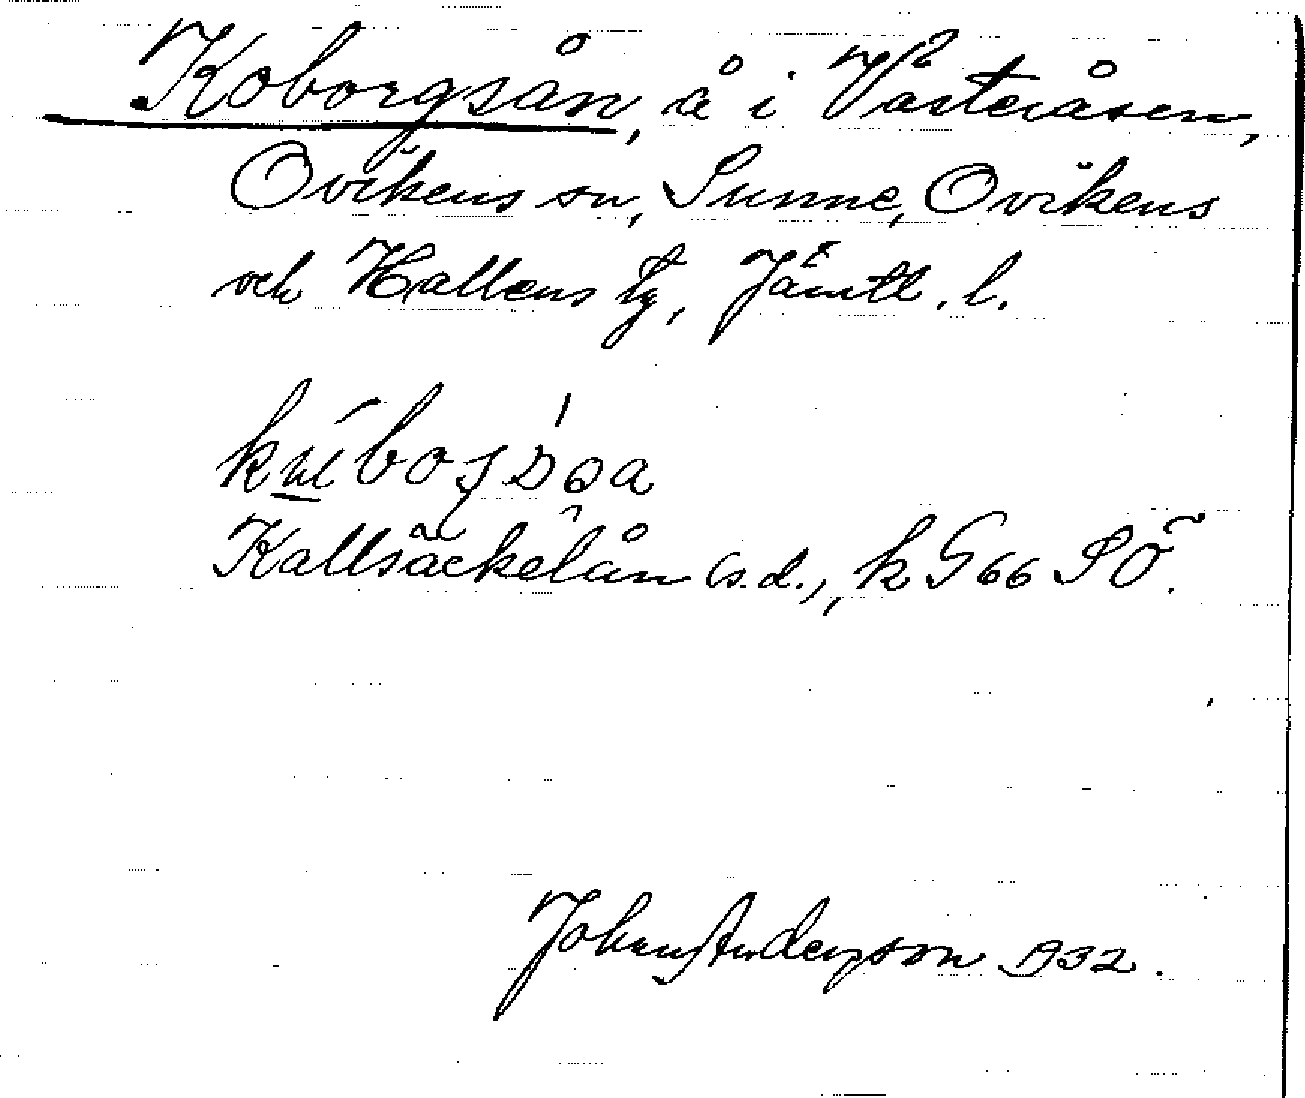 Koborgsån, å i Västeråsen,
Ovikens sn, Sunne, Ovikens
och Hallens tg, Jämtl. l.
Kallsäckelån (s.d.), k G 66 SÖ.
Johan Anderson 1932.